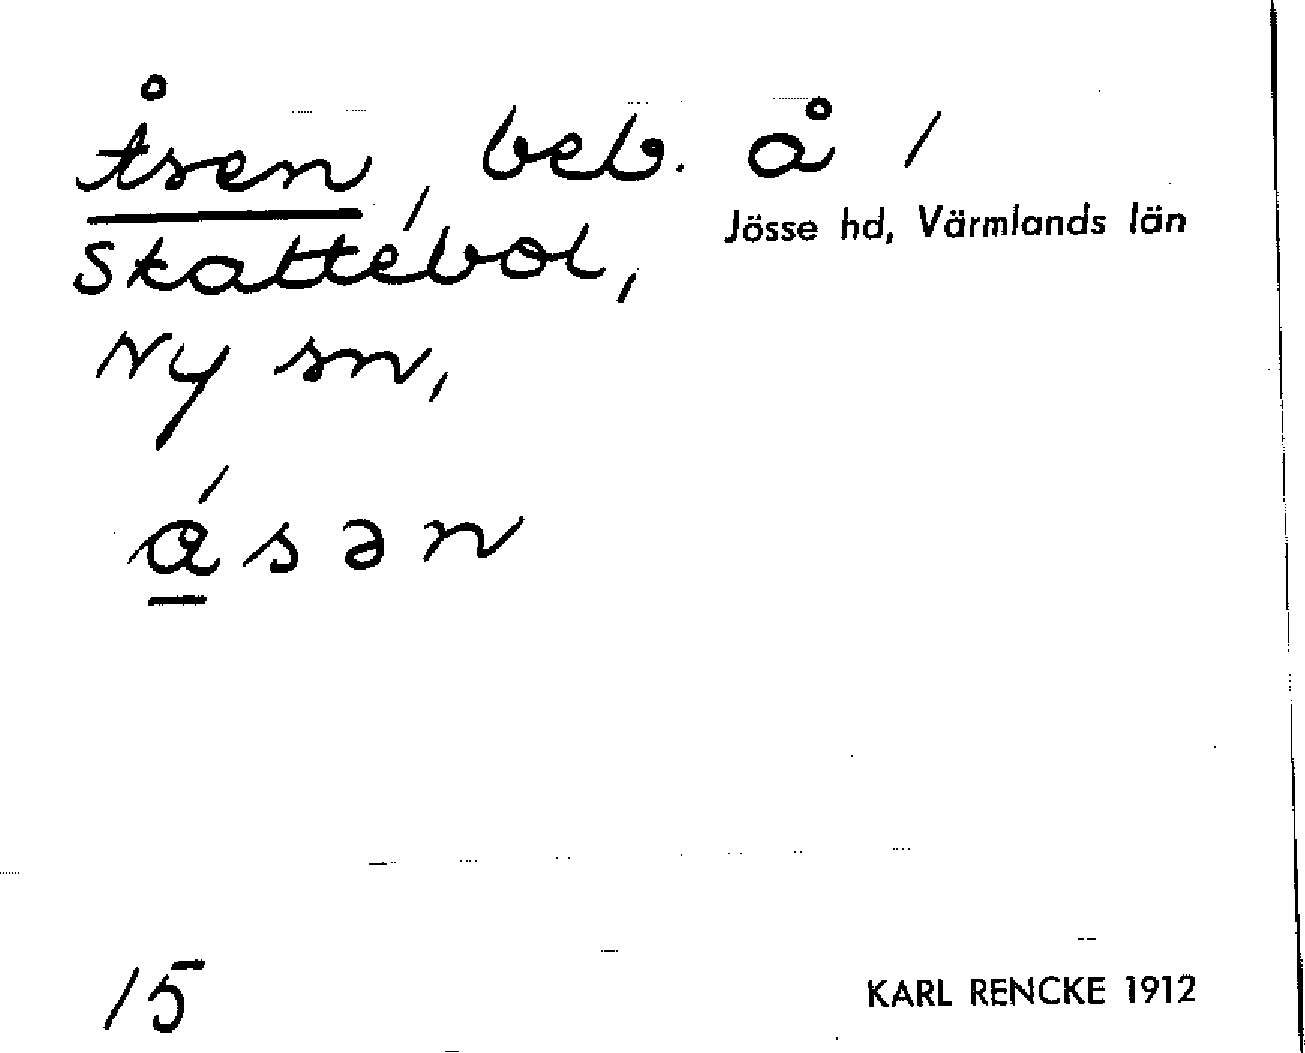 Åsen, beb. å /
Jösse hd, Värmlands län
Skattebol,
Ny sn,
ásən
15
KARL RENCKE 1912